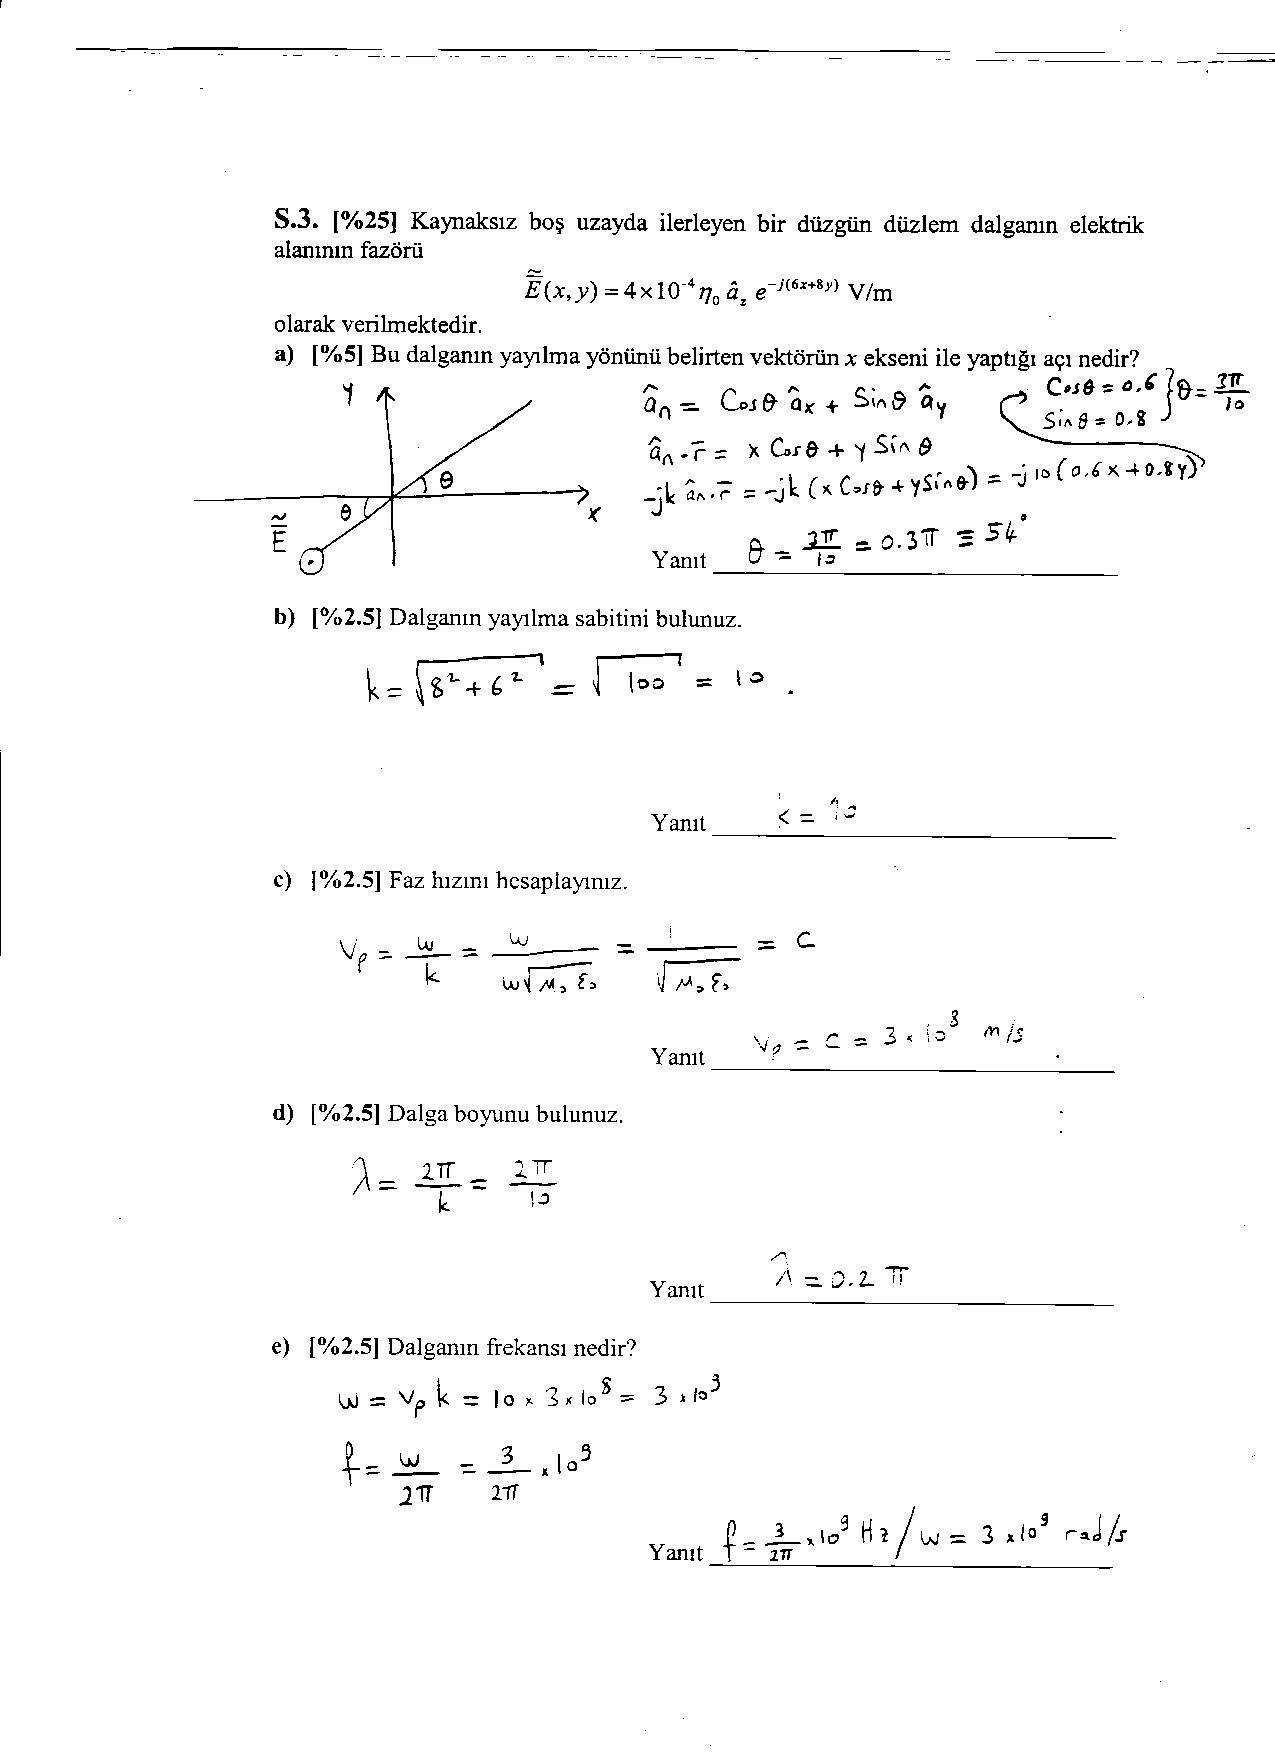 S.3. [%25] Kaynaksız boş uzayda ilerleyen bir düzgün düzlem dalganın elektrik
alanının fazörü
Ẽ(x, y) = 4×10⁻⁴ η₀ â_z e^{-j(6x+8y)} V/m
olarak verilmektedir.
a) [%5] Bu dalganın yayılma yönünü belirten vektörün x ekseni ile yaptığı açı nedir?
y
x
θ
θ
Ẽ
â_n = Cosθ â_x + Sinθ â_y
Cosθ = 0.6
Sinθ = 0.8
} θ = 3π/10
â_n . r̄ = x Cosθ + y Sinθ
-jk â_n . r̄ = -jk (x Cosθ + y Sinθ) = -j 10 (0.6 x + 0.8 y)
Yanıt θ = 3π/10 = 0.3π ≡ 54°
b) [%2.5] Dalganın yayılma sabitini bulunuz.
k = √(8² + 6²) = √100 = 10 .
Yanıt k = 10
c) [%2.5] Faz hızını hesaplayınız.
V_p = w/k = w/(w√(μ₀ ε₀)) = 1/√(μ₀ ε₀) = c
Yanıt V_p = c = 3 × 10⁸ m/s
d) [%2.5] Dalga boyunu bulunuz.
λ = 2π/k = 2π/10
Yanıt λ = 0.2 π
e) [%2.5] Dalganın frekansı nedir?
w = V_p k = 10 × 3 × 10⁸ = 3 × 10⁹
f = w/2π = 3/2π × 10⁹
Yanıt f = 3/2π × 10⁹ Hz / w = 3 × 10⁹ rad/s